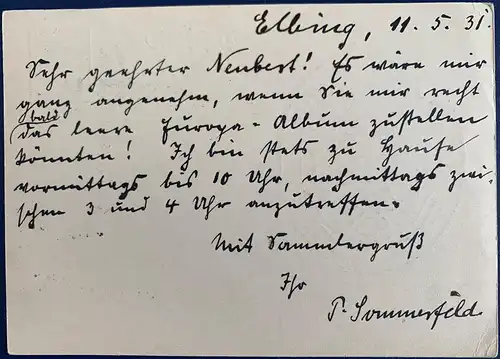 Elbing, 11. 5. 31.
Sehr geehrter Neubert! Es wäre mir
ganz angenehm, wenn Sie mir recht
bald
das leere Europa-Album zustellen
könnten! Ich bin stets zu Hause
vormittags bis 10 Uhr, nachmittags zwi-
schen 3 und 4 Uhr anzutreffen.
Mit Sammlergruß
Ihr
P. Sommerfeld